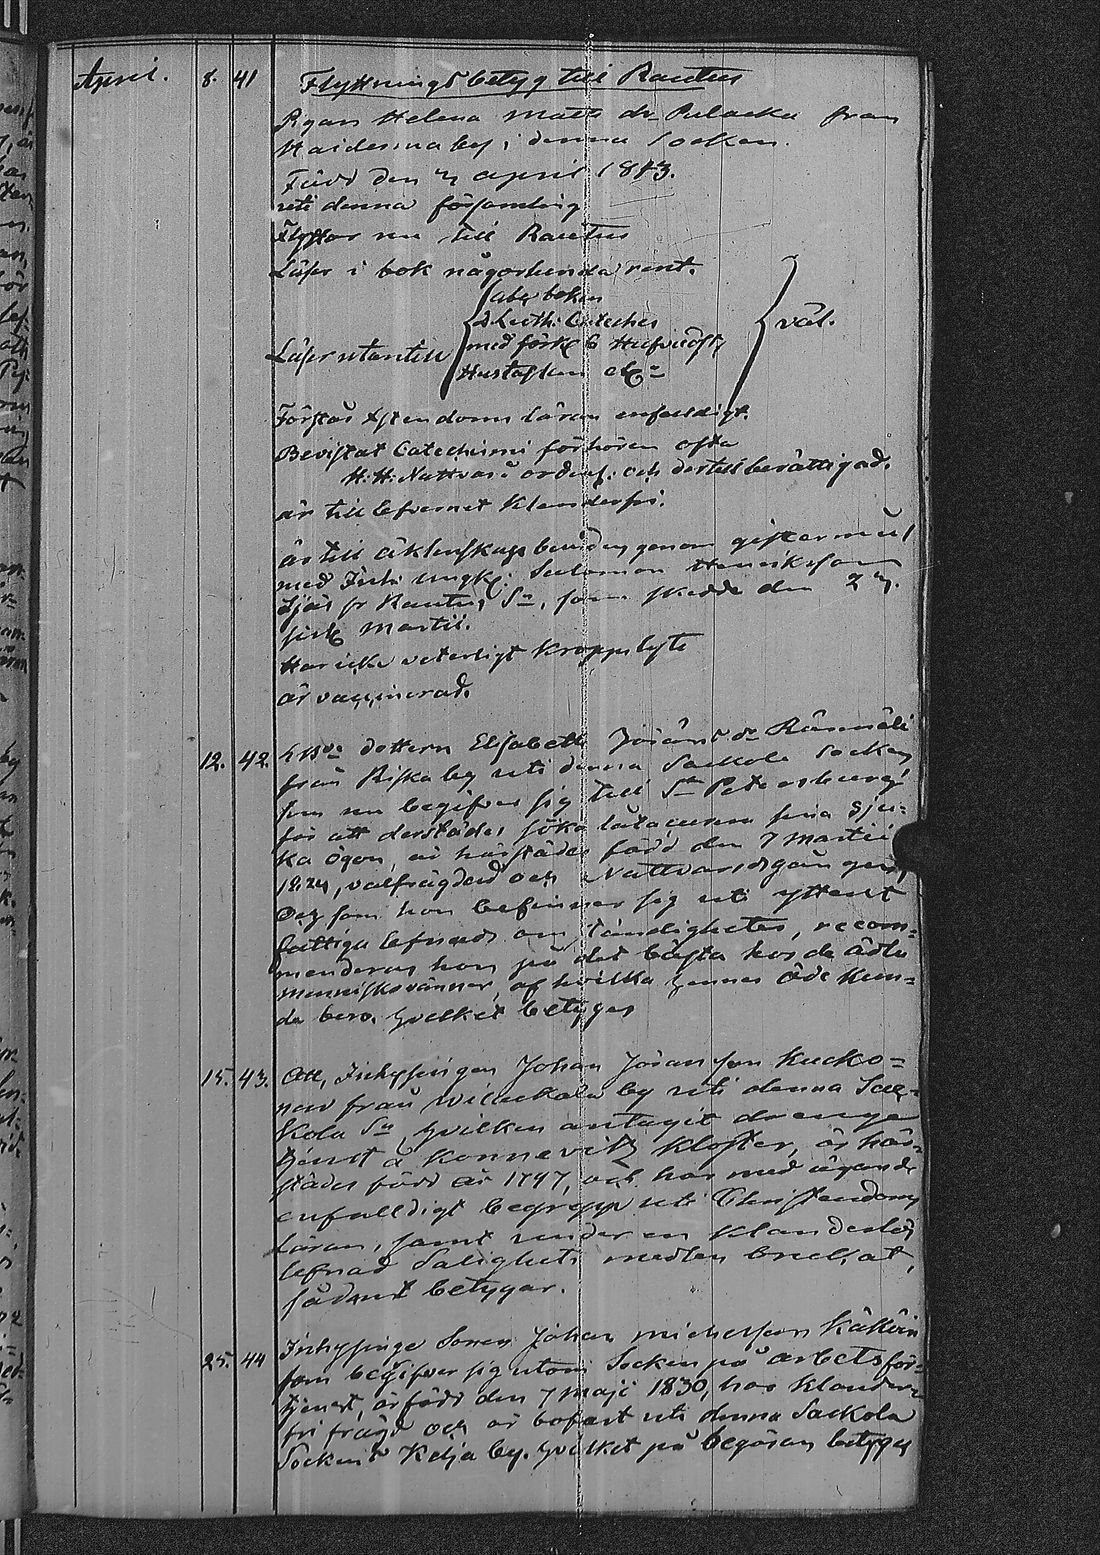 April. 8. 41 Flyttningsbetyg till Rautus
Pigan Helena Matts dr Pulacka från
by i denna Socken.
Född den 4 april 1813.
uti denna församling
Flyttar nu till Rautus
Läser i bok någorlunda rent.
abc boken
Luth: Cateches
Läser utantill med förkl: väl.
Hustaflan etc
Förstår Xstendoms läran enfaldigt.
Bevistat Catechismi förhören ofta
H: H: Nattvard och dertill berättigad.
är till lefvernet Klanderfri.
är till äktenskap genom giftermål
med ungk: Salomon Henriksson
fr Rautus Sn, som skedde den 2
sistl Martii.
Har icke veterligt kroppslyte
är vaccinerad.
12. 42. dottern Elisabeth Jöransdr
från Riska by uti denna Sackola Socken
som nu begifver sig till St Petersburg
för att derstädes söka låta curera sina sju-
ka ögon, är härstädes född den 7 Martii
1824, välfrägdad och Nattvardsgången
Och som hon befinner sig uti ytterst
fattiga lefnads omständigheter, recom-
menderas hon på det bästa hos de ädla
menniskovänner, af hvilka hennes öde kun-
de bero. Hvilket betygas
15. 43. Att, Inhysingen Johan Jöransson Kucko-
nen från by uti denna Sac-
kola Sn, hvilken antagit drenge
tjenst å Konnevitz Kloster, är här-
städes född år 1797, och har med ägande
enfalldigt begrepp uti Christendoms
Läran, samt under en Klanderlös
lefnad Salighets medlen brukat,
sådant betygar.
25. 44 Inhysinge Sonen Johan Michelsson
som begifver sig utom Socken på arbetsför-
tjenst, är född den 7 Maji 1830, har klander-
fri frägd och är bofast uti denna Sackola
Socken Kelja by. Hvilket på begäran betygas